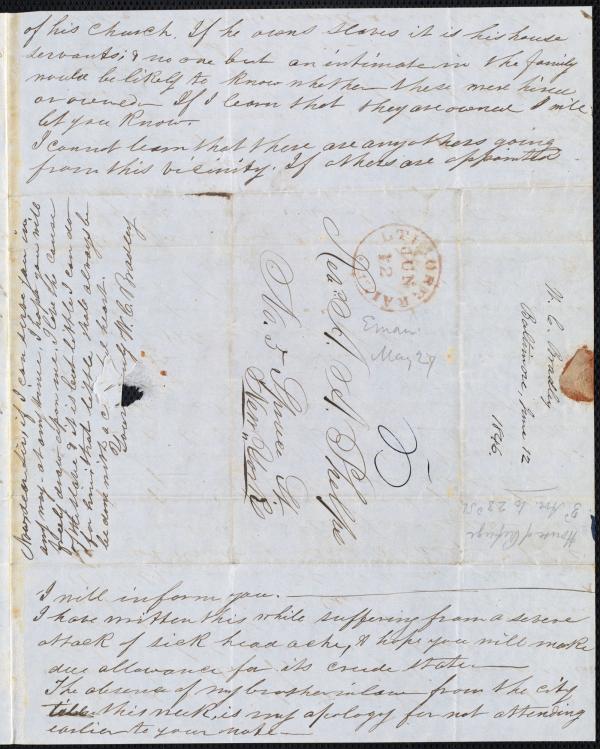 of his church. If he owns slaves it is his house
servants; & no one but an intimate in the family
would be likely to know whether these were hired
or owned. If I learn that they are owned I will
let you know.
I cannot learn that there are any others going
from this vicinity. If others are appointed
I will inform you.
I have written this while suffering from a severe
attack of sick head ache, & hope you will make
due allowance for its crude state
The absence of my brother in law from the city
till this week, is my apology for not attending
earlier to your note
Now dear sir if I can serve you in
any way at any time I hope you will
freely draw upon me. I love the cause
of the slave & it is but little I can do
for him, that little shall always be
done with a heart.
Yours truly W. C. Bradley
Rev A. A. Phelps
No. 5 Spruce St.
New York
BALTIMORE RAILR
JUN
12
5
Eman.
May 29
W. C. Bradley
Baltimore, June 12
1846
House of Refuge